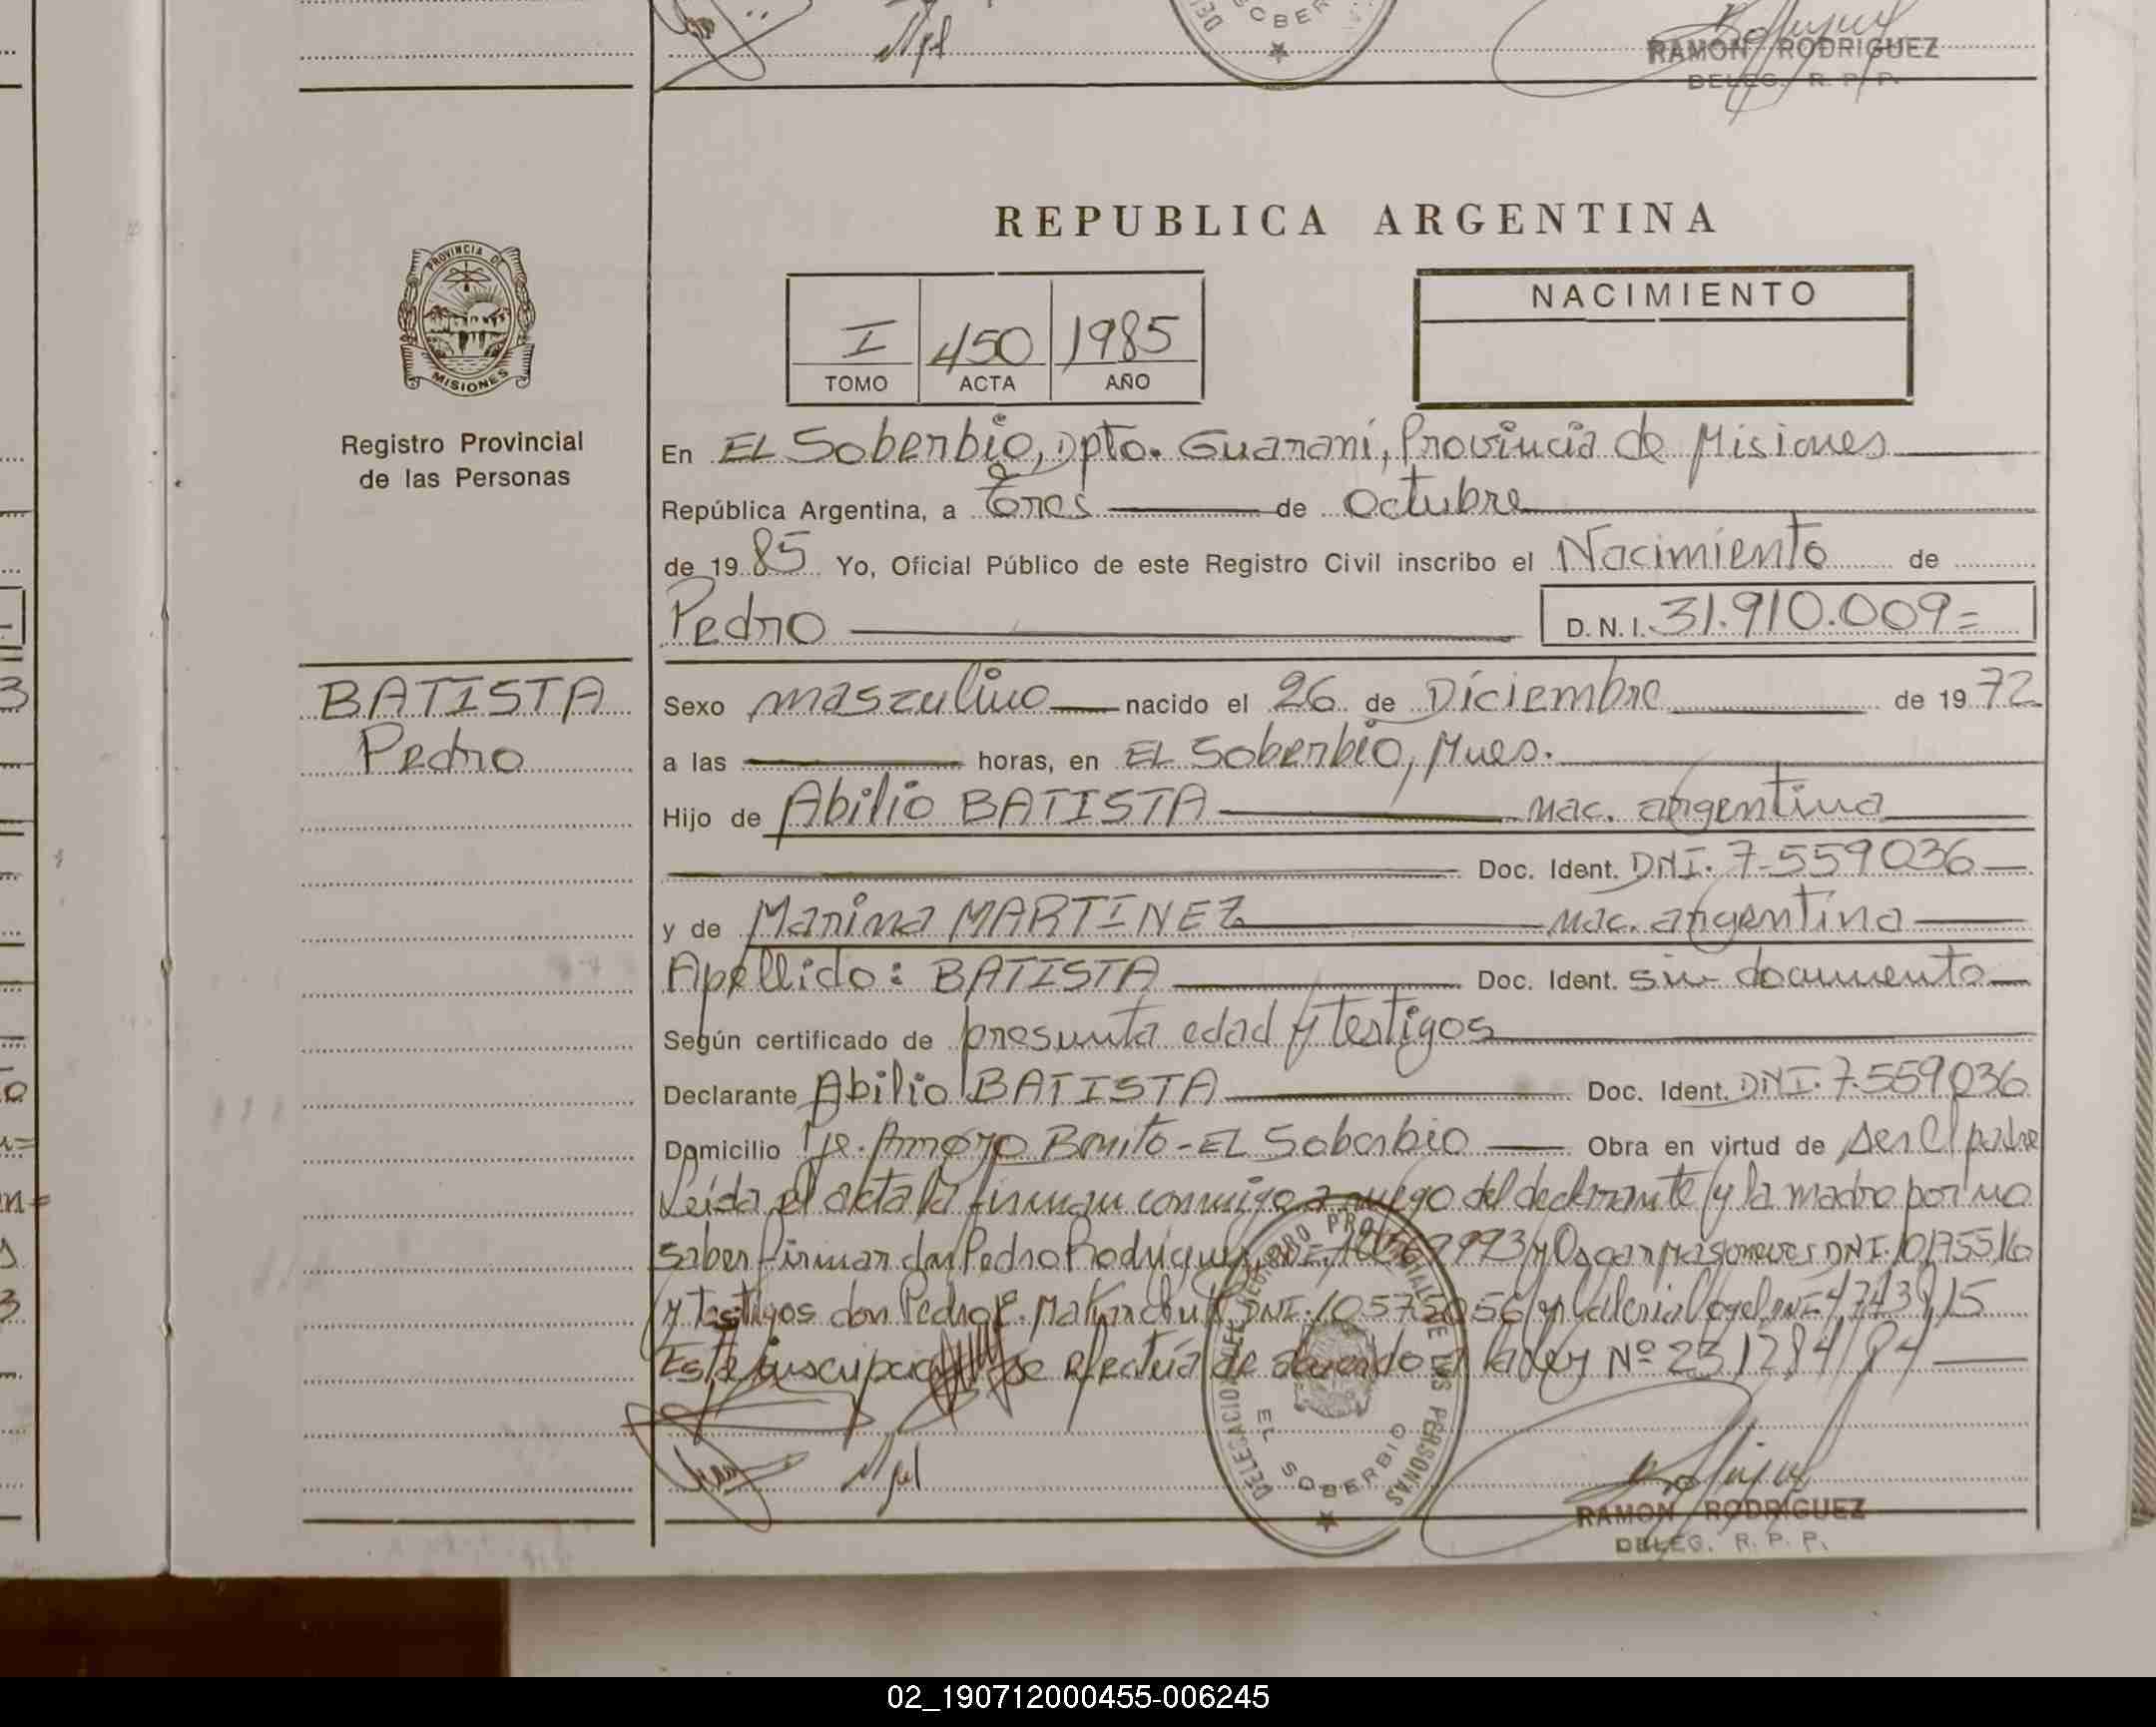 DEL
SOBER
RAMON RODRIGUEZ
DELEG. R. P. P.
REPUBLICA ARGENTINA
PROVINCIA DE
MISIONES
Registro Provincial
de las Personas
I 450 1985
TOMO ACTA AÑO
NACIMIENTO
En EL Soberbio, Dpto. Guaraní, Provincia de Misiones
República Argentina, a Tres de Octubre
de 1985 Yo, Oficial Público de este Registro Civil inscribo el Nacimiento de
Pedro D. N. I. 31.910.009=
BATISTA
Pedro
Sexo masculino nacido el 26 de Diciembre de 1972
a las horas, en EL Soberbio, Mnes.
Hijo de Abilio BATISTA nac. argentina
Doc. Ident. DNI. 7.559036
y de Marina MARTINEZ nac. argentina
Apellido: BATISTA Doc. Ident. sin documento
Según certificado de presunta edad y testigos
Declarante Abilio BATISTA Doc. Ident. DNI. 7.559036
Domicilio Pje. Arroyo Bonito - EL Soberbio Obra en virtud de ser el padre
Leída el acta la firman conmigo a ruego del declarante y la madre por no
saber firmar don Pedro Rodriguez y Oscar DNI. 10175516
y testigos don Pedro E. DNI. 10573056 y Valeria Vogel
Esta inscripción se efectúa de acuerdo a la ley Nº 23.128/84
DELEGACION DEL REGISTRO PROVINCIAL DE LAS PERSONAS
EL SOBERBIO
RAMON RODRIGUEZ
DELEG. R. P. P.
02_190712000455-006245